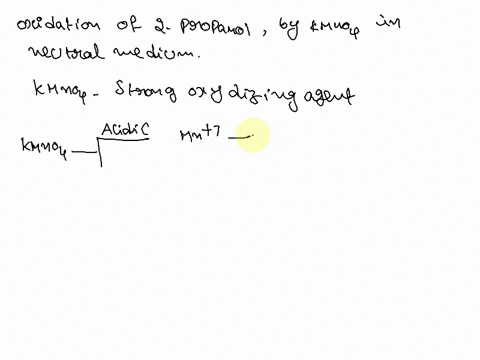 oxidation of 2-propanol, by KMnO4 in
neutral medium.
KMnO4 - Strong oxydizing agent
Acidic Mn+7
KMnO4